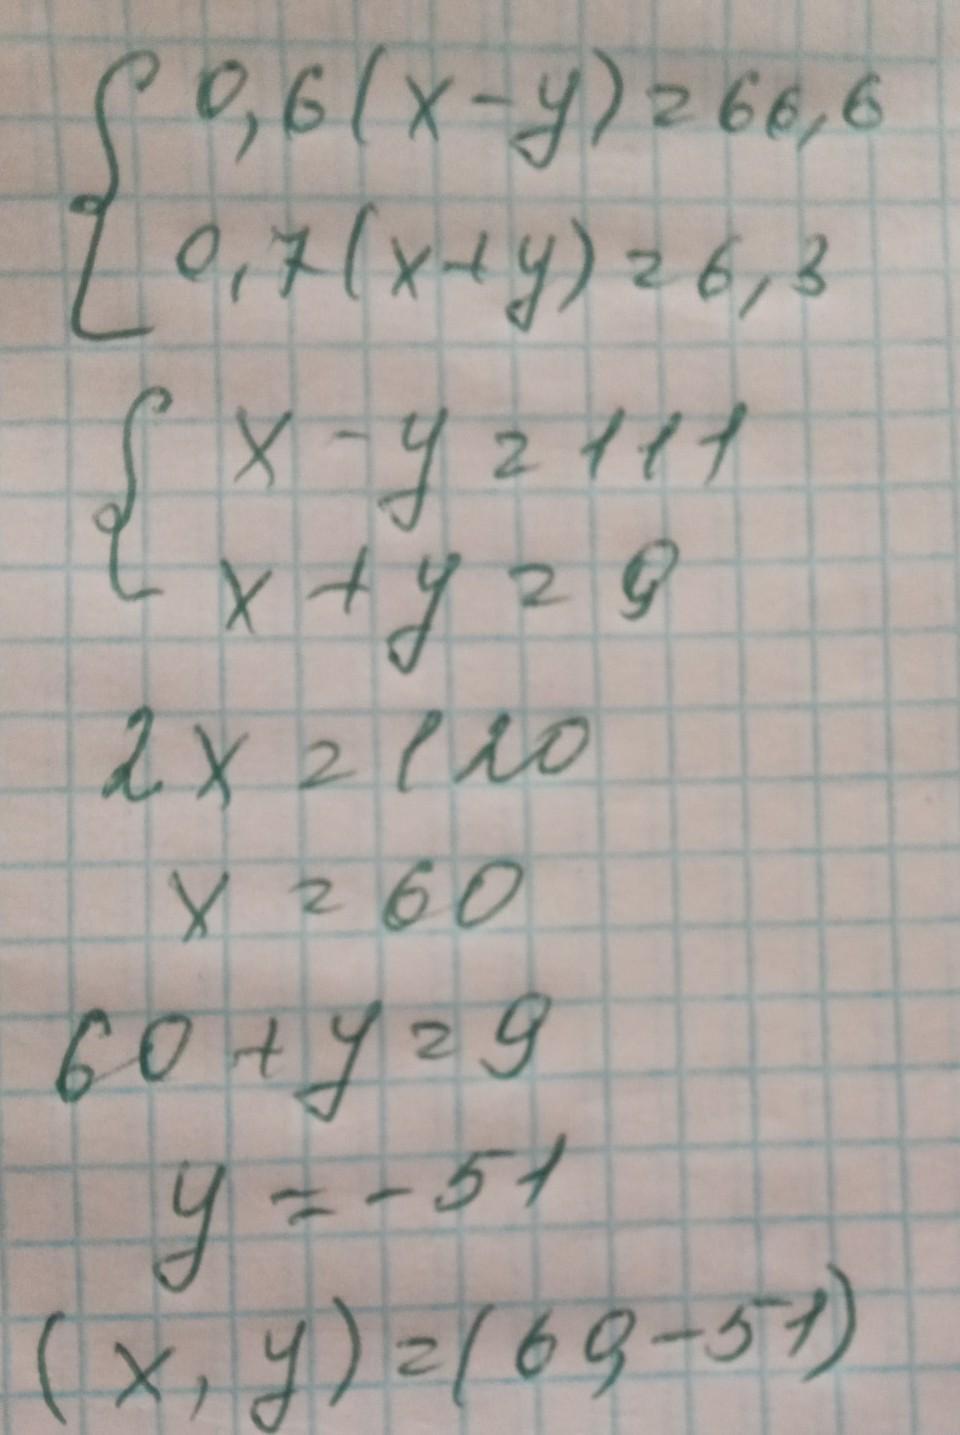 0,6(x-y)=66,6
0,7(x+y)=6,3
x-y=111
x+y=9
2x=120
x=60
60+y=9
y=-51
(x,y)=(60,-51)